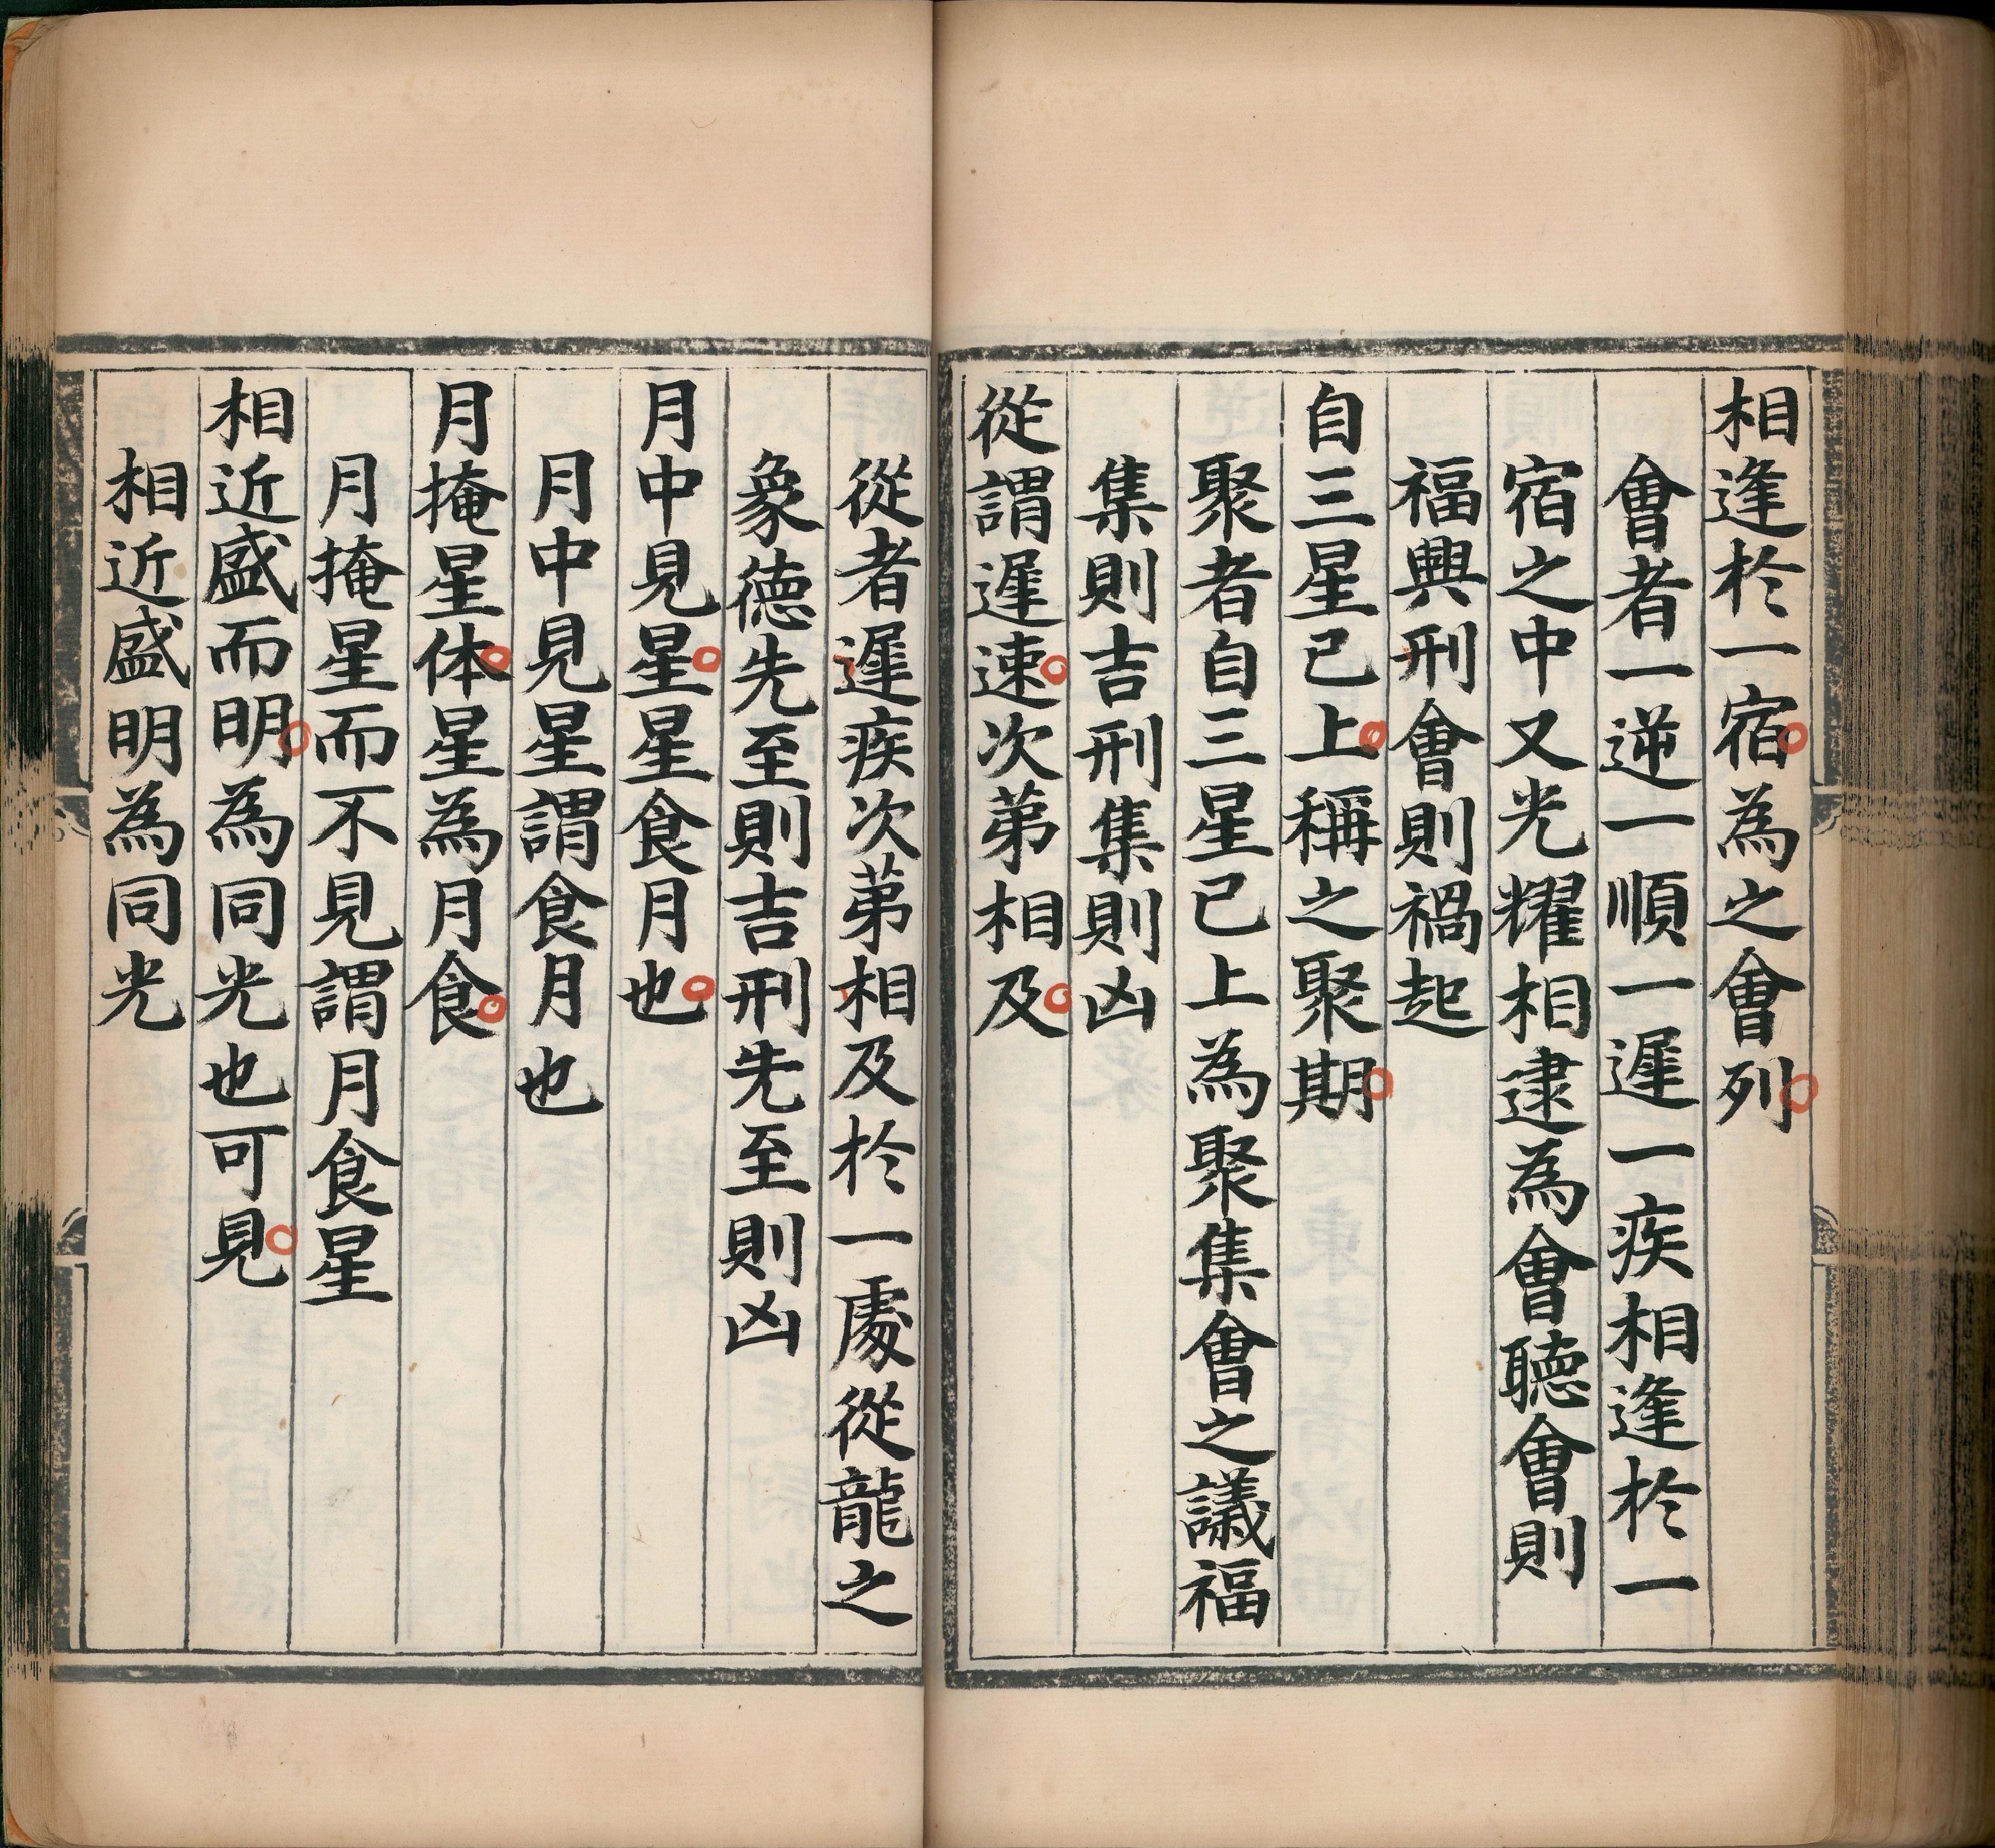 相逢於一宿為之會列
會者一逆一順一遲一疾相逢於一
宿之中又光耀相逮為會聴會則
福興刑會則禍起
自三星已上稱之聚期
聚者自三星已上為聚集會之議福
集則吉刑集則凶
從謂遲速次苐相及
從者遲疾次苐相及於一處從龍之
象德先至則吉刑先至則凶
月中見星星食月也
月中見星謂食月也
月掩星体星為月食
月掩星而不見謂月食星
相近盛而明為同光也可見
相近盛明為同光